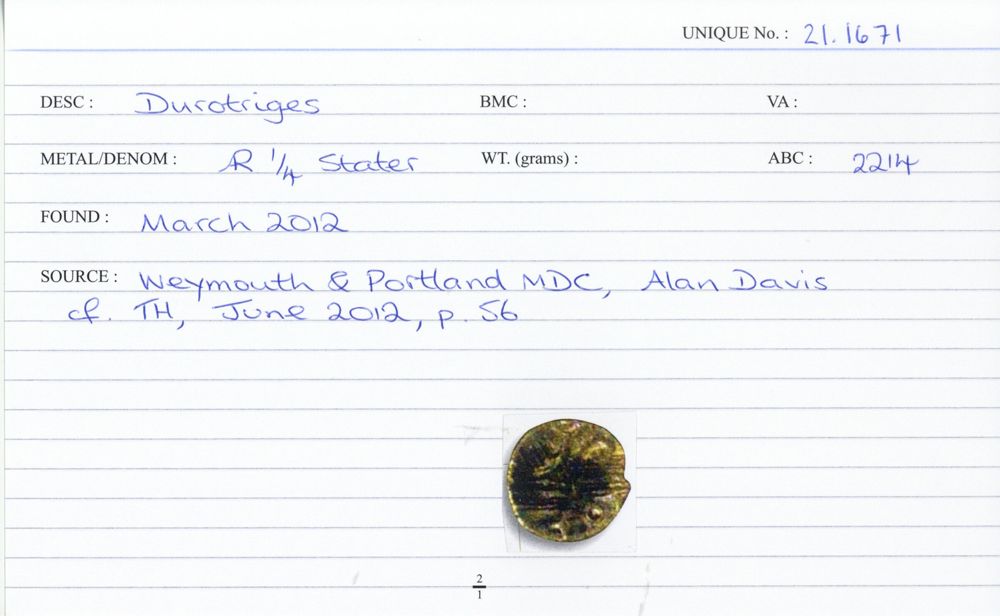 UNIQUE No. : 21.1671
DESC : Durotriges BMC : VA :
METAL/DENOM : R 1/4 Stater WT. (grams) : ABC : 2214
FOUND : March 2012
SOURCE : Weymouth & Portland MDC, Alan Davis
cf. TH, June 2012, p. 56
2
1